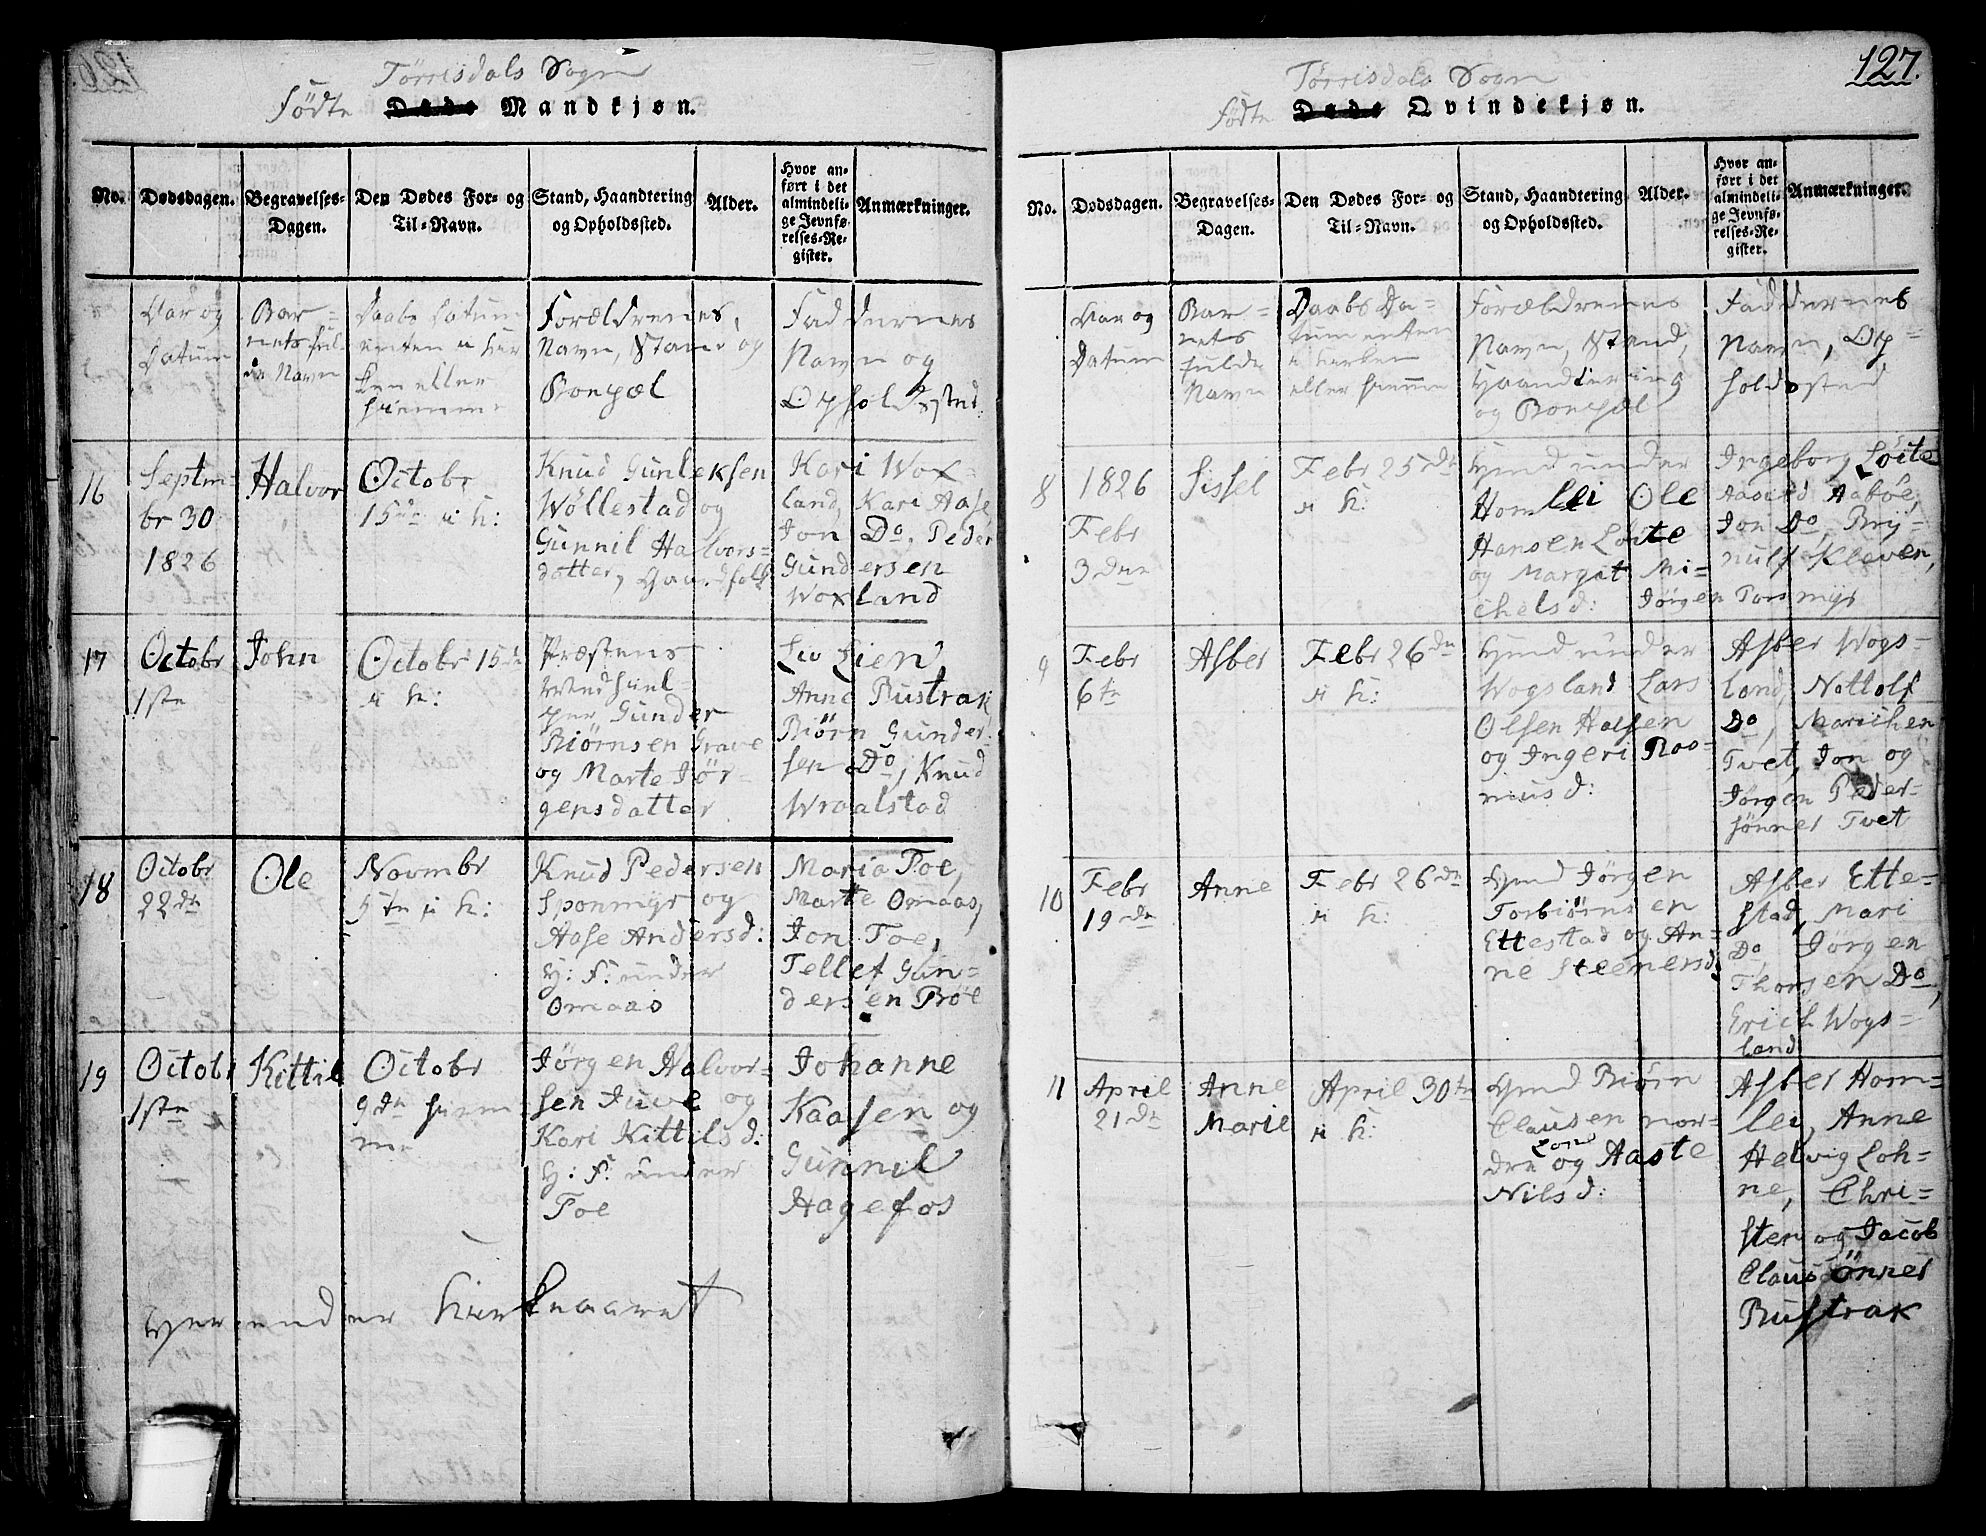 126.
Tørrisdals Sogn
Fødte Døde Mandkjøn.
No.
Dødsdagen.
Begravelses-
Dagen.
Den Dødes For- og
Til-Navn.
Stand, Haandtering
og Opholdssted.
Alder.
Hvor an-
ført i det
almindeli-
ge Jevnfø-
relses-Re-
gister.
Anmærkninger.
Aar og
Datum
Bar-
nets ful-
de Navn
Daabs Datum
enten i kir
ken eller
hiemme
Forældrenes,
Navn, Stand og
Bopæl
Faddernes
Navn og
Opholdssted:
16
Septm-
br 30
1826
Halvor
Octobr
15de i k:
Knud Gunleksen
Wöllestad og
Gunnil Halvors-
datter, Gaardfolk
Kari Wox-
land, Kari Aase
Jon Do, Peder
Gundersen
Woxland
17
Octobr
1ste
John
Octobr 15de
i k:
Præstens
Medhiel-
per Gunder
Biörnsen Grave
og Marte Jör-
gensdatter
Liv Lien,
Anne Rustrak
Biörn Gunder-
sen Do, Knud
Wraalstad
18
Octobr
22de
Ole
Novmbr
5te i k:
Knud Pedersen
Sponmyr og
Aase Andersd:
H: F: under
Omaas
Maria Toe,
Marte Omaas,
Jon Toe,
Tellef Gun-
dersen Böe
19
Octobr
1ste
Kittil
Octobr
9de hiem
me
Jörgen Halvor-
sen Juve og
Kari Kittilsd:
H: F: under
Toe
Johanne
Kaasen og
Gunnil
Hagefos
Her ender kirkeaaret
127.
Tørrisdals Sogn
Fødte Døde Qvindekjøn.
No.
Dødsdagen.
Begravelses-
Dagen.
Den Dødes For- og
Til-Navn.
Stand, Haandtering
og Opholdssted.
Alder.
Hvor an-
ført i det
almindeli-
ge Jevnfø-
relses-Re-
gister.
Anmærkninger.
Aar og
Datum
Bar-
nets
fulde
Navn
Daabs Da-
tum enten
i kirken
eller hiemme
Forældrenes
Navn, Stand,
Haandtering
og Bopæl
Faddernes
Navn, Op-
holdssted
8
1826
Febr
3die
Sissel
Febr 25de
i k:
Hmd under
Homlei Ole
Hansen Löite
og Margit Mi-
chelsd:
Ingeborg Löite
Aaböe,
Jon Do, Bry-
nulf Kleven,
Jörgen Tonmyr
9
Febr
6te
Asber
Febr 26de
i k:
Hmd under
Wogsland Lars
Olsen
og Ingeri Ras-
musd:
Asber Wogs-
land, Nottolf
Do, Marichen
Tvet, Jon og
Jörgen Peder-
sönner Tvet
10
Febr
19de
Anne
Febr 26de
i k:
Hmd Jörgen
Torbiörnsen
Ettestad og An-
ne Steenersd:
Asber Ette-
stad, Mari
Do, Jörgen
Thorsen Do,
Erich Wogs-
land
11
April
21de
Anne
Marie
April 30te
i k:
Hmd Biörn
Clausen nor-
dre Lone og Aaste
Nilsd:
Asber Hom-
lei, Anne
Helvig Loh-
ne, Chri-
sten og Jacob
Claussönner
Rustrak